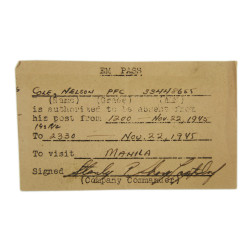 EM PASS
COLE, NELSON PFC 33445665
(Name) (Grade) (A.P.)
is authorized to be absent from
his post from 1200 - Nov. 22, 1945
To 2330 - Nov. 22, 1945
To visit MANILA
Signed
(Company Commander)